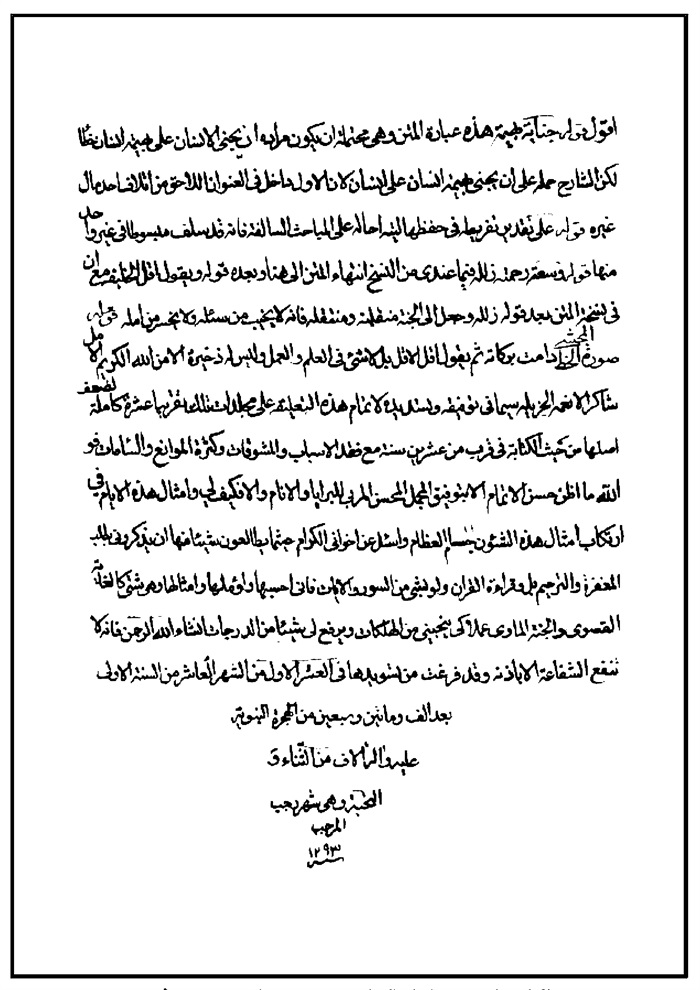 اقول قوله جناية بهيمة هذه عبارة المتن وهي محتملة ان يكون مراده ان يجنى الانسان على بهيمة انسان
لكن الشارح حمله على ان يجنى بهيمة انسان على انسان لان الاول داخل في العنوان اللاحق من اتلاف احد مال
غيره قوله على تقدير تفريطه في حفظها اليه احاله على المباحث السالفة فانه قد سلف مبسوطا في غير واحد
منها قوله وسعة رحمته زلله فيما عندى من النسخ انتهاء المتن الى هنا وبعده قوله ويقول اقل الخليقة مع ان
في نسخة المتن بعد قوله زلله وجعل الى الجنة منقلبه فانه لا يخيب من سئله ولا يخسر من امله قوله
صورة خط المحشي دامت بركاته ثم يقول اقل الاقل بل لا شئ في العلم والعمل وليس له ذخيرة الا من الله الكريم
شاكرا لانعمه الجزيلة سيما في توفيقه وتسديده لاتمام هذه التعليقة على مجلدات عشرة كاملة
اصلها من حيث الكتابة في قرب من عشرين سنة مع فقد الاسباب والمشوقات وكثرة الموانع فو
الله ما اظن حسن الاتمام الا بتوفيق المجمل المحسن المربى للبرايا والانام والا فكيف لي وامثال هذه الايام في
ارتكاب امثال هذه الشئون جسام العظام واسئل عن اخواني الكرام حيثما يطالعون شيئا منها ان يذكروني بطلب
المغفرة والترحيم بل وقراءة القران ولو بشئ من السور والايات فاني احسبها واوملها وامثالها وهو شئ كالغاية
القصوى والجنة الماوى عملا كى ينجينى من الهلكات ويرفع لى شيئا من الدرجات انشاء الله الرحمن فانه لا
تنفع الشفاعة الا باذنه وقد فرغت من تسويدها في العشر الاول من الشهر العاشر من السنة الاولى
بعد الف وماتين وسبعين من الهجرة النبوية
عليه واله الاف من الثناء و
التحية وهى شهر رجب
المرجب
١٢٩٣